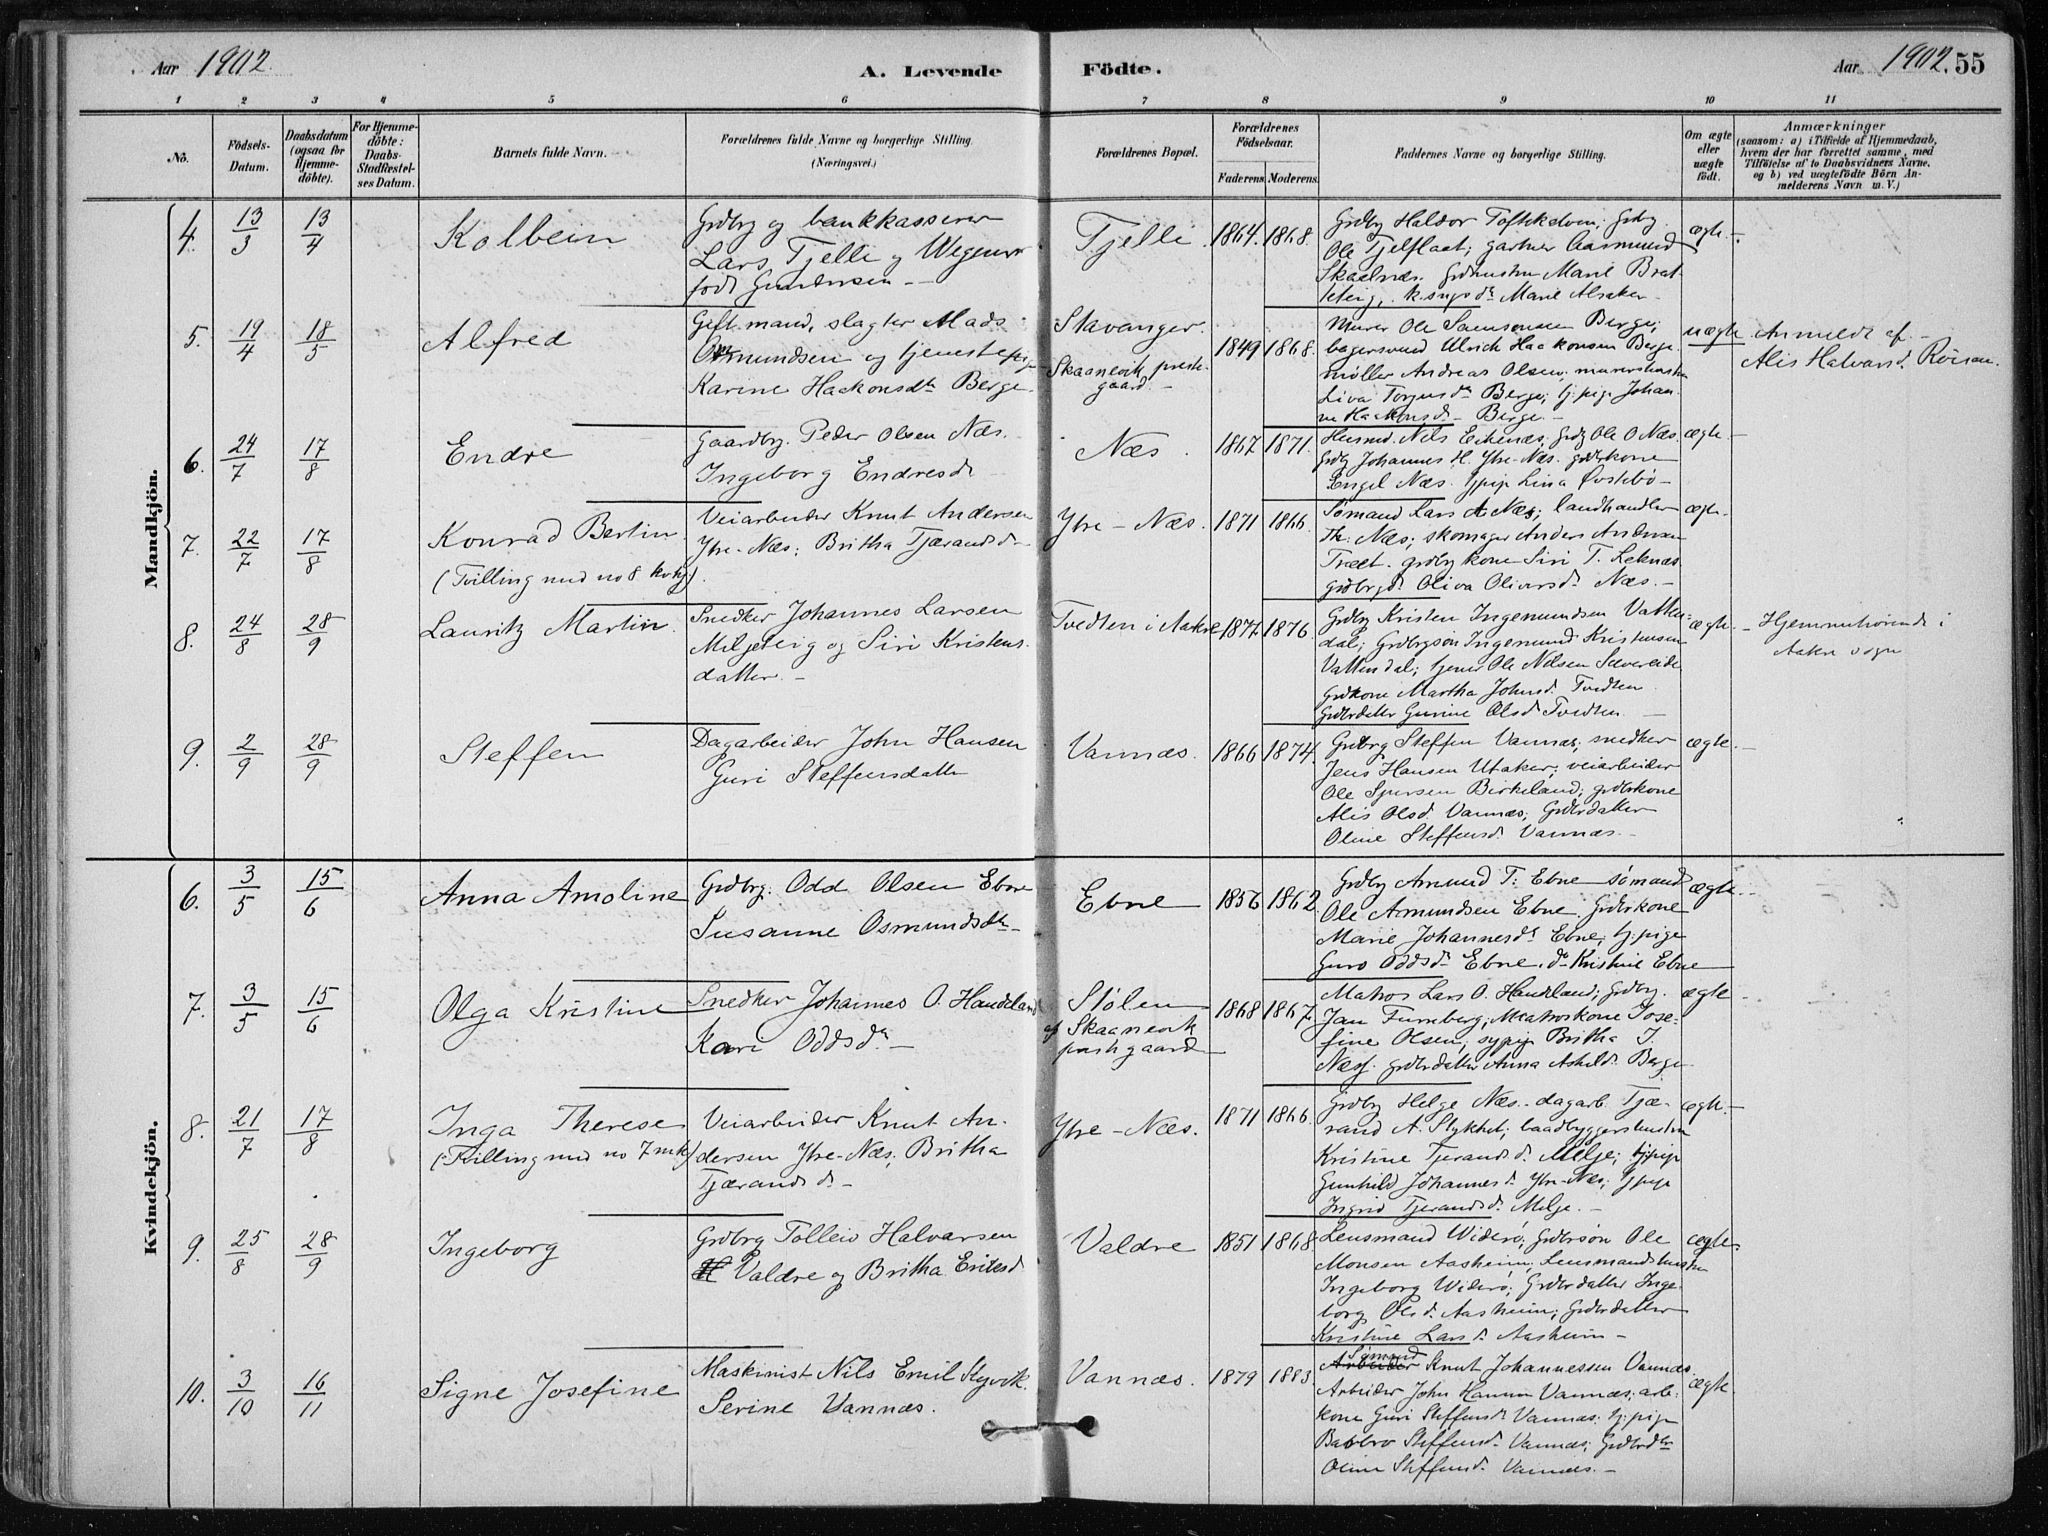 Aar 1902.
A. Levende Födte.
Aar 1902. 55
1 2 3 4 5 6 7 8 9 10 11
No.
Födsels-
Datum.
Daabsdatum
(ogsaa for
Hjemme-
döbte).
For Hjemme-
döbte:
Daabs-
Stadfæstel-
ses Datum.
Barnets fulde Navn.
Forældrenes fulde Navne og borgerlige Stilling.
(Næringsvei.)
Forældrenes Bopæl.
Forældrenes
Födselsaar.
Faderens. Moderens.
Faddernes Navne og borgerlige Stilling.
Om ægte
eller
uægte
födt.
Anmærkninger
(saasom: a) i Tilfælde af Hjemmedaab,
hvem der har forrettet samme, med
Tilföielse af to Daabsvidners Navne,
og b) ved uægtefödte Börn An-
melderens Navn m. V.)
Mandkjön.
4. 13/3 13/4
Kolbein
Grdbrg og bankkasserer
Lars Tjelle og
født Gundersen
Tjelle. 1864. 1868.
Grdbrg Haldor Tofthelven; Grdbrg
Ole Tjelflaat; gartner Aasmund
Skaalnæs. Marie Brat-
teteig, Marie Alsaker
ægte.
5. 19/4 18/5
Alfred
Gift mand, slagter Mads
Osmundsen og tjenestepige
Karine Haekonsdtr Berge.
Stavanger.
Skaanevik preste-
gaard.
1849 1868.
Murer Ole Samsonsen Berge;
bagersvend Ulrich Haakonsen Berge.
møller Andreas Olsen,
Berge; tj.pige Johan-
ne Haekonsd. Berge.
uægte
Anmeldt af
Alis Halvarsd.
6. 24/7 17/8
Endre
Gaardbr. Peder Olsen Næs.
Ingeborg Endresd.
Næs. 1867 1871.
Husmd. Nils Ekenæs, Grdbrg Ole O Næs.
Grdbrg Johannes H. Ytre-Næs. grdbrkone
Engel Næs. tj.pige Lina Østebø
ægte
7. 22/7 17/8
Konrad Bertin.
(Tvilling med no 8 kvkj).
Veiarbeider Knut Andersen
Ytre-Næs; Britha Tjærandsd
Ytre-Næs. 1871 1866
Sømand Lars A Næs; landhandler
Th. Næs; skomager Anders Andersen
Træet. grdbrg kone Siri T. Leknæs
Oliva Oliversd. Næs.
ægte
8. 24/8 28/9
Lauritz Martin.
Snedker Johannes Larsen
Miljeteig og Siri Kristens-
datter.
Tvedten i Aakre 1877. 1876.
Grdbrg Kristen Ingemundsen Vatten-
dal; Grdbrgsøn Ingemund Kristensen
Vattendal; tjener Ole Nilsen Sævereide
Grdkone Martha Johnsd. Tvedten.
Grdbrdatter Gurine Olsd Tvedten.
ægte.
Hjemmehørende i
Aakre sogn
9. 2/9 28/9
Steffen
Dagarbeider John Hansen
Guri Steffensdatter
Vannæs. 1866 1874.
Grdbrg Steffen Vannæs; snedker
Jens Hansen Utaker; veiarbeider
Ole Birkeland; grdbrkone
Alis Olsd. Vannæs; Grdbrdatter
Oline Steffensd. Vannæs.
ægte.
Kvindekjön.
6. 3/5 15/6
Anna Amoline
Grdbrg. Odd Olsen Ebne
Susanne Osmundsdtr
Ebne 1856 1862.
Grdbrg Amund T. Ebne sømand
Ole Amundsen Ebne. Grdbrkone
Marie Johannesd. Ebne; tj.pige
Guro Oddsd. Ebne. do Kristine Ebne
ægte.
7. 3/5 15/6
Olga Kristine
Snedker Johannes O. Handeland
Kari Oddsd.
Stølen
af Skaanevik
prestgaard
1868 1867.
Matros Lars O. Handeland; Grdbrg.
Jan Furuberg; Matroskone Jose-
fine Olsen; sypige Britha J.
Næss. grdbrdatter Anna Askilds. Berge
ægte
8. 21/7 17/8
Inga Therese
(Tvilling med no 7 mk)
Veiarbeider Knut An-
dersen Ytre-Næs; Britha
Tjærandsd.
Ytre-Næs. 1871 1866.
Grdbrg Helge Næs. dagarb. Tjæ-
rand A. Stykket; baadbyggerhustru
Kristine Tjerandsd. Milje; tj.pige
Gunhild Johannesd. Ytre-Næs; tj.pige
Ingrid Tjerandsd. Milje.
ægte.
9. 25/8 28/9
Ingeborg
Grdbrg Tolleiv Halvarsen
Valdre og Britha Eriksd
Valdre 1851 1868.
Lensmand Widerø; Grdbrsøn Ole
Monsen Aasheim; Lensmandshustru
Ingeborg Widerø; Grdbrdatter Inge-
borg Olsd. Aasheim; Grdbrdatter
Kristine Larsd. Aasheim
ægte
10. 3/10 16/11
Signe Josefine
Maskinist Nils Emil Kyvik.
Serine Vannæs.
Vannæs. 1879 1883.
Sømand
Arbeider Knut Johannessen Vannæs.
Arbeider John Hansen Vannæs; arb.
kone Guri Steffensd. Vannæs. tj.pige
Babbro Steffensd. Vannæs; Grdbrdtr
Oline Steffensd. Vannæs.
ægte.